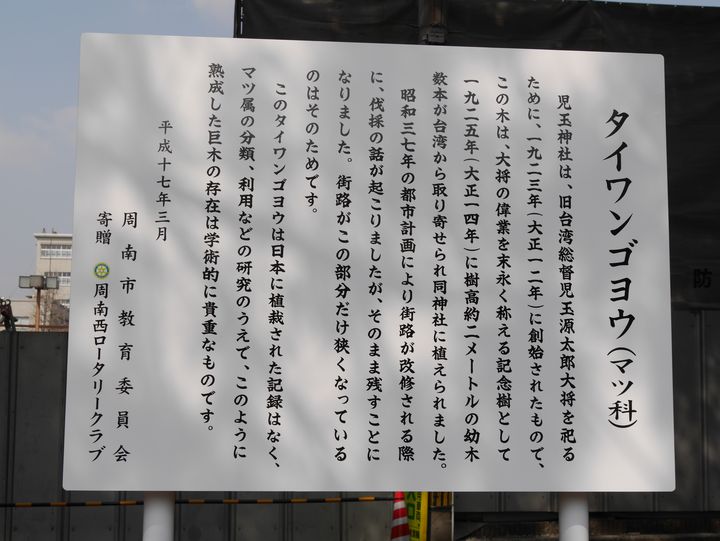 タイワンゴヨウ(マツ科)
児玉神社は、旧台湾総督児玉源太郎大将を祀る
ために、一九二三年(大正一二年)に創始されたもので、
この木は、大将の偉業を末永く称える記念樹として
一九二五年(大正一四年)に樹高約二メートルの幼木
数本が台湾から取り寄せられ同神社に植えられました。
昭和三七年の都市計画により街路が改修される際
に、伐採の話が起こりましたが、そのまま残すことに
なりました。街路がこの部分だけ狭くなっている
のはそのためです。
このタイワンゴヨウは日本に植栽された記録はなく、
マツ属の分類、利用などの研究のうえで、このように
熟成した巨木の存在は学術的に貴重なものです。
平成十七年三月
周南市教育委員会
寄贈 周南西ロータリークラブ
防